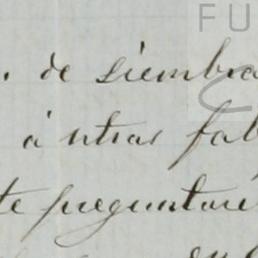 FU
. de siembra
á ntras fab
te preguntaré